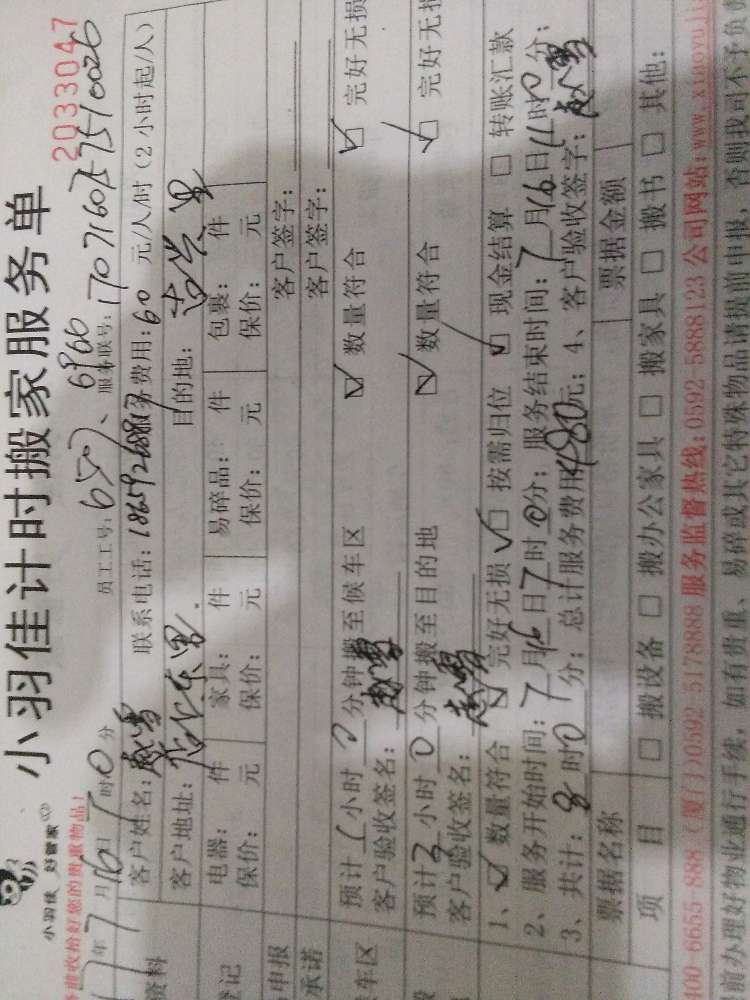 小羽佳 好管家
小羽佳计时搬家服务单
2033047
验收恰好您的贵重物品!
年7月16日7时0分
员工工号:6507、6966 服务联号:
客户姓名:赵雪 联系电话: 服务费用:60 元/人/时(2小时起/人)
客户地址: 目的地:
电器: 件 家具: 件 易碎品: 件 包裹: 件
保价: 元 保价: 元 保价: 元 保价: 元
申报 客户签字:
承诺 客户签字:
预计1小时0分钟搬至候车区 ☑数量符合 ☑完好无损
客户验收签名:赵雪
预计3小时0分钟搬至目的地 ☑数量符合 ☑完好无损
客户验收签名:赵雪
1、☑数量符合 ☑完好无损 ☑按需归位 ☑现金结算 □转账汇款
2、服务开始时间:7月16日7时0分;服务结束时间:7月16日11时0分;
3、共计:8时0分;总计服务费用480元;4、客户验收签字:赵雪
票据名称 票据金额
项目 □搬设备 □搬办公家具 □搬家具 □搬书 □其他:
00-6655-888 (厦门)0592-5178888 服务监督热线:0592-5888123 公司网站:www.xiaoyujia
前办理好物业通行手续,如有贵重、易碎或其它特殊物品请提前申报,否则我司不予负责